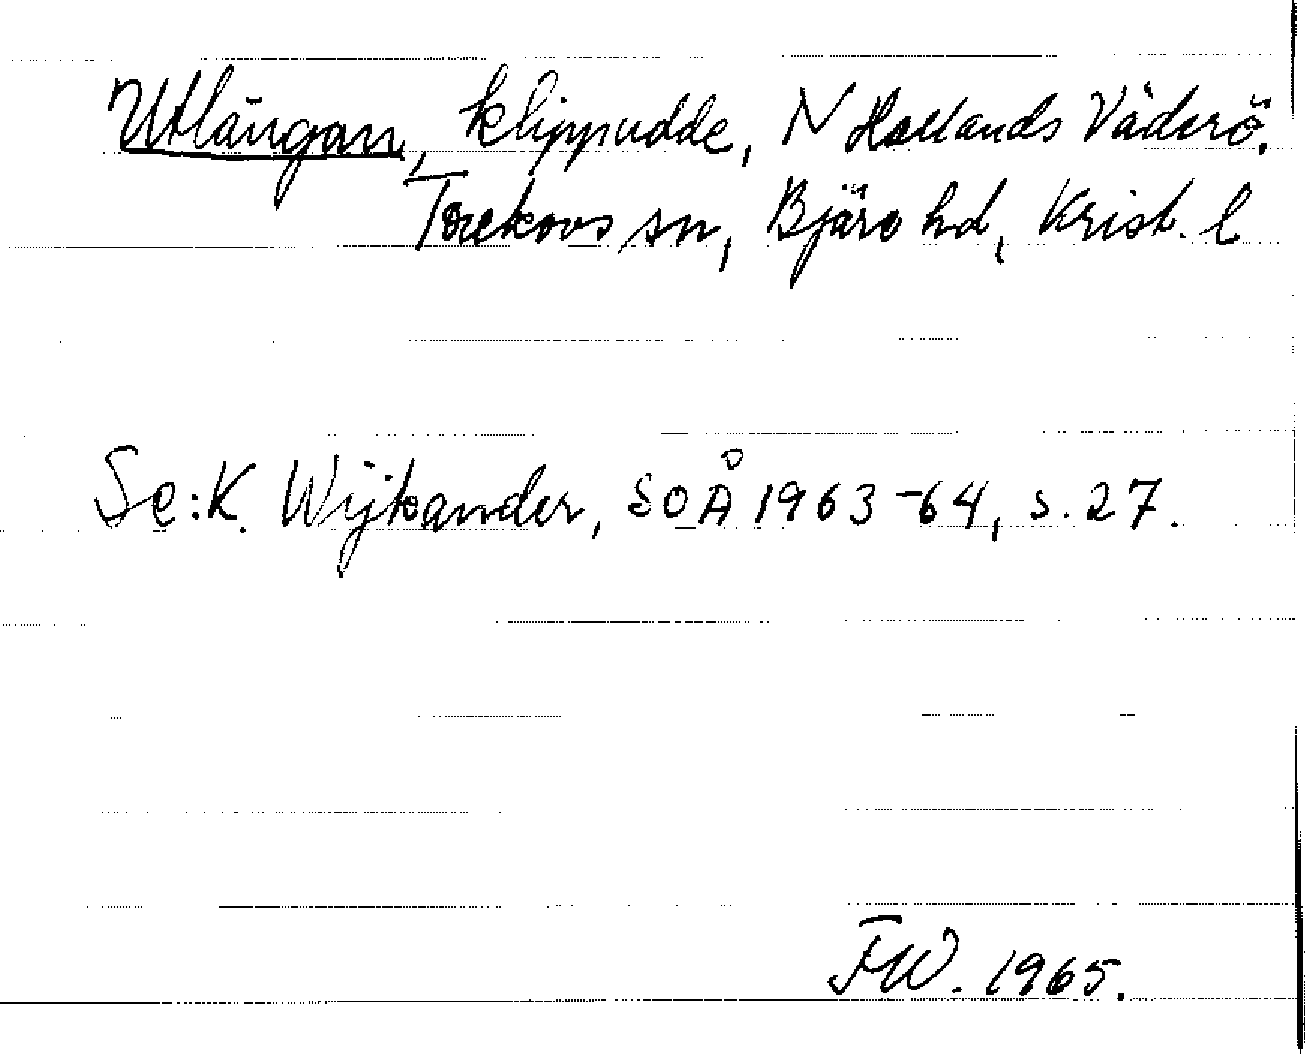 Utlängan, klippudde, N Hallands Väderö.
Torekovs sn, Bjäre hd, Krist. l
Se: K. Wijkander, SOÅ 1963-64, s. 27.
FW. 1965.